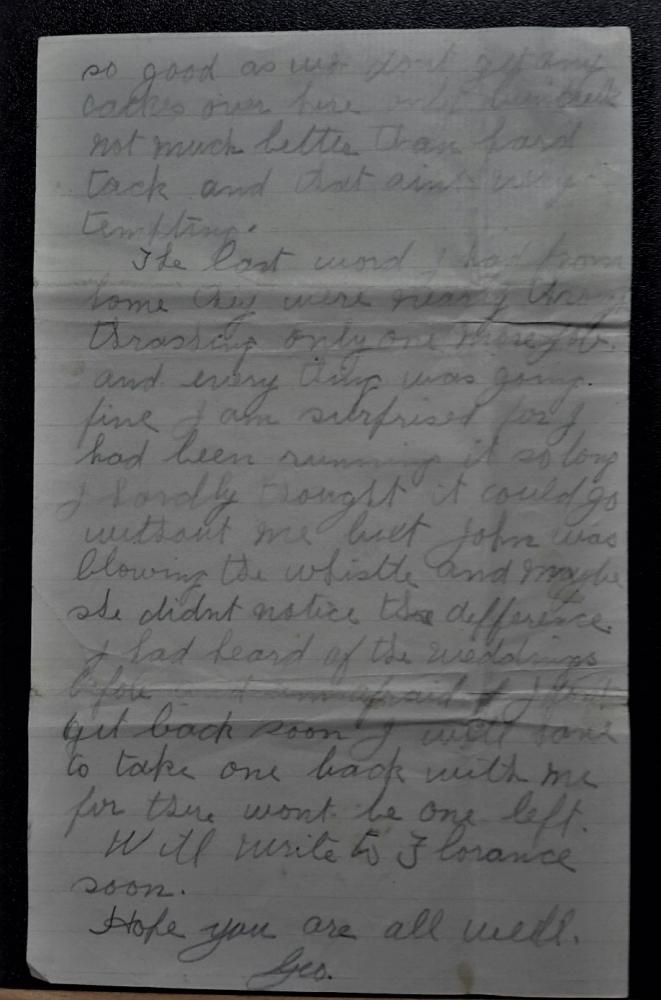 so good as we dont get any
cackes over here only
not much better than hard
tack and that aint very
tempting.
The last word I had from
home they were nearly through
thrashing only one more job.
and every thing was going.
fine I am surprised for I
had been running it so long
I hardly thought it could go
without me but John was
blowing the whistle and maybe
she didnt notice the difference.
I had heard of the weddings
before and am afraid if I dont
get back soon I will have
to take one back with me
for there wont be one left.
Will write to Florance
soon.
Hope you are all well.
Geo.